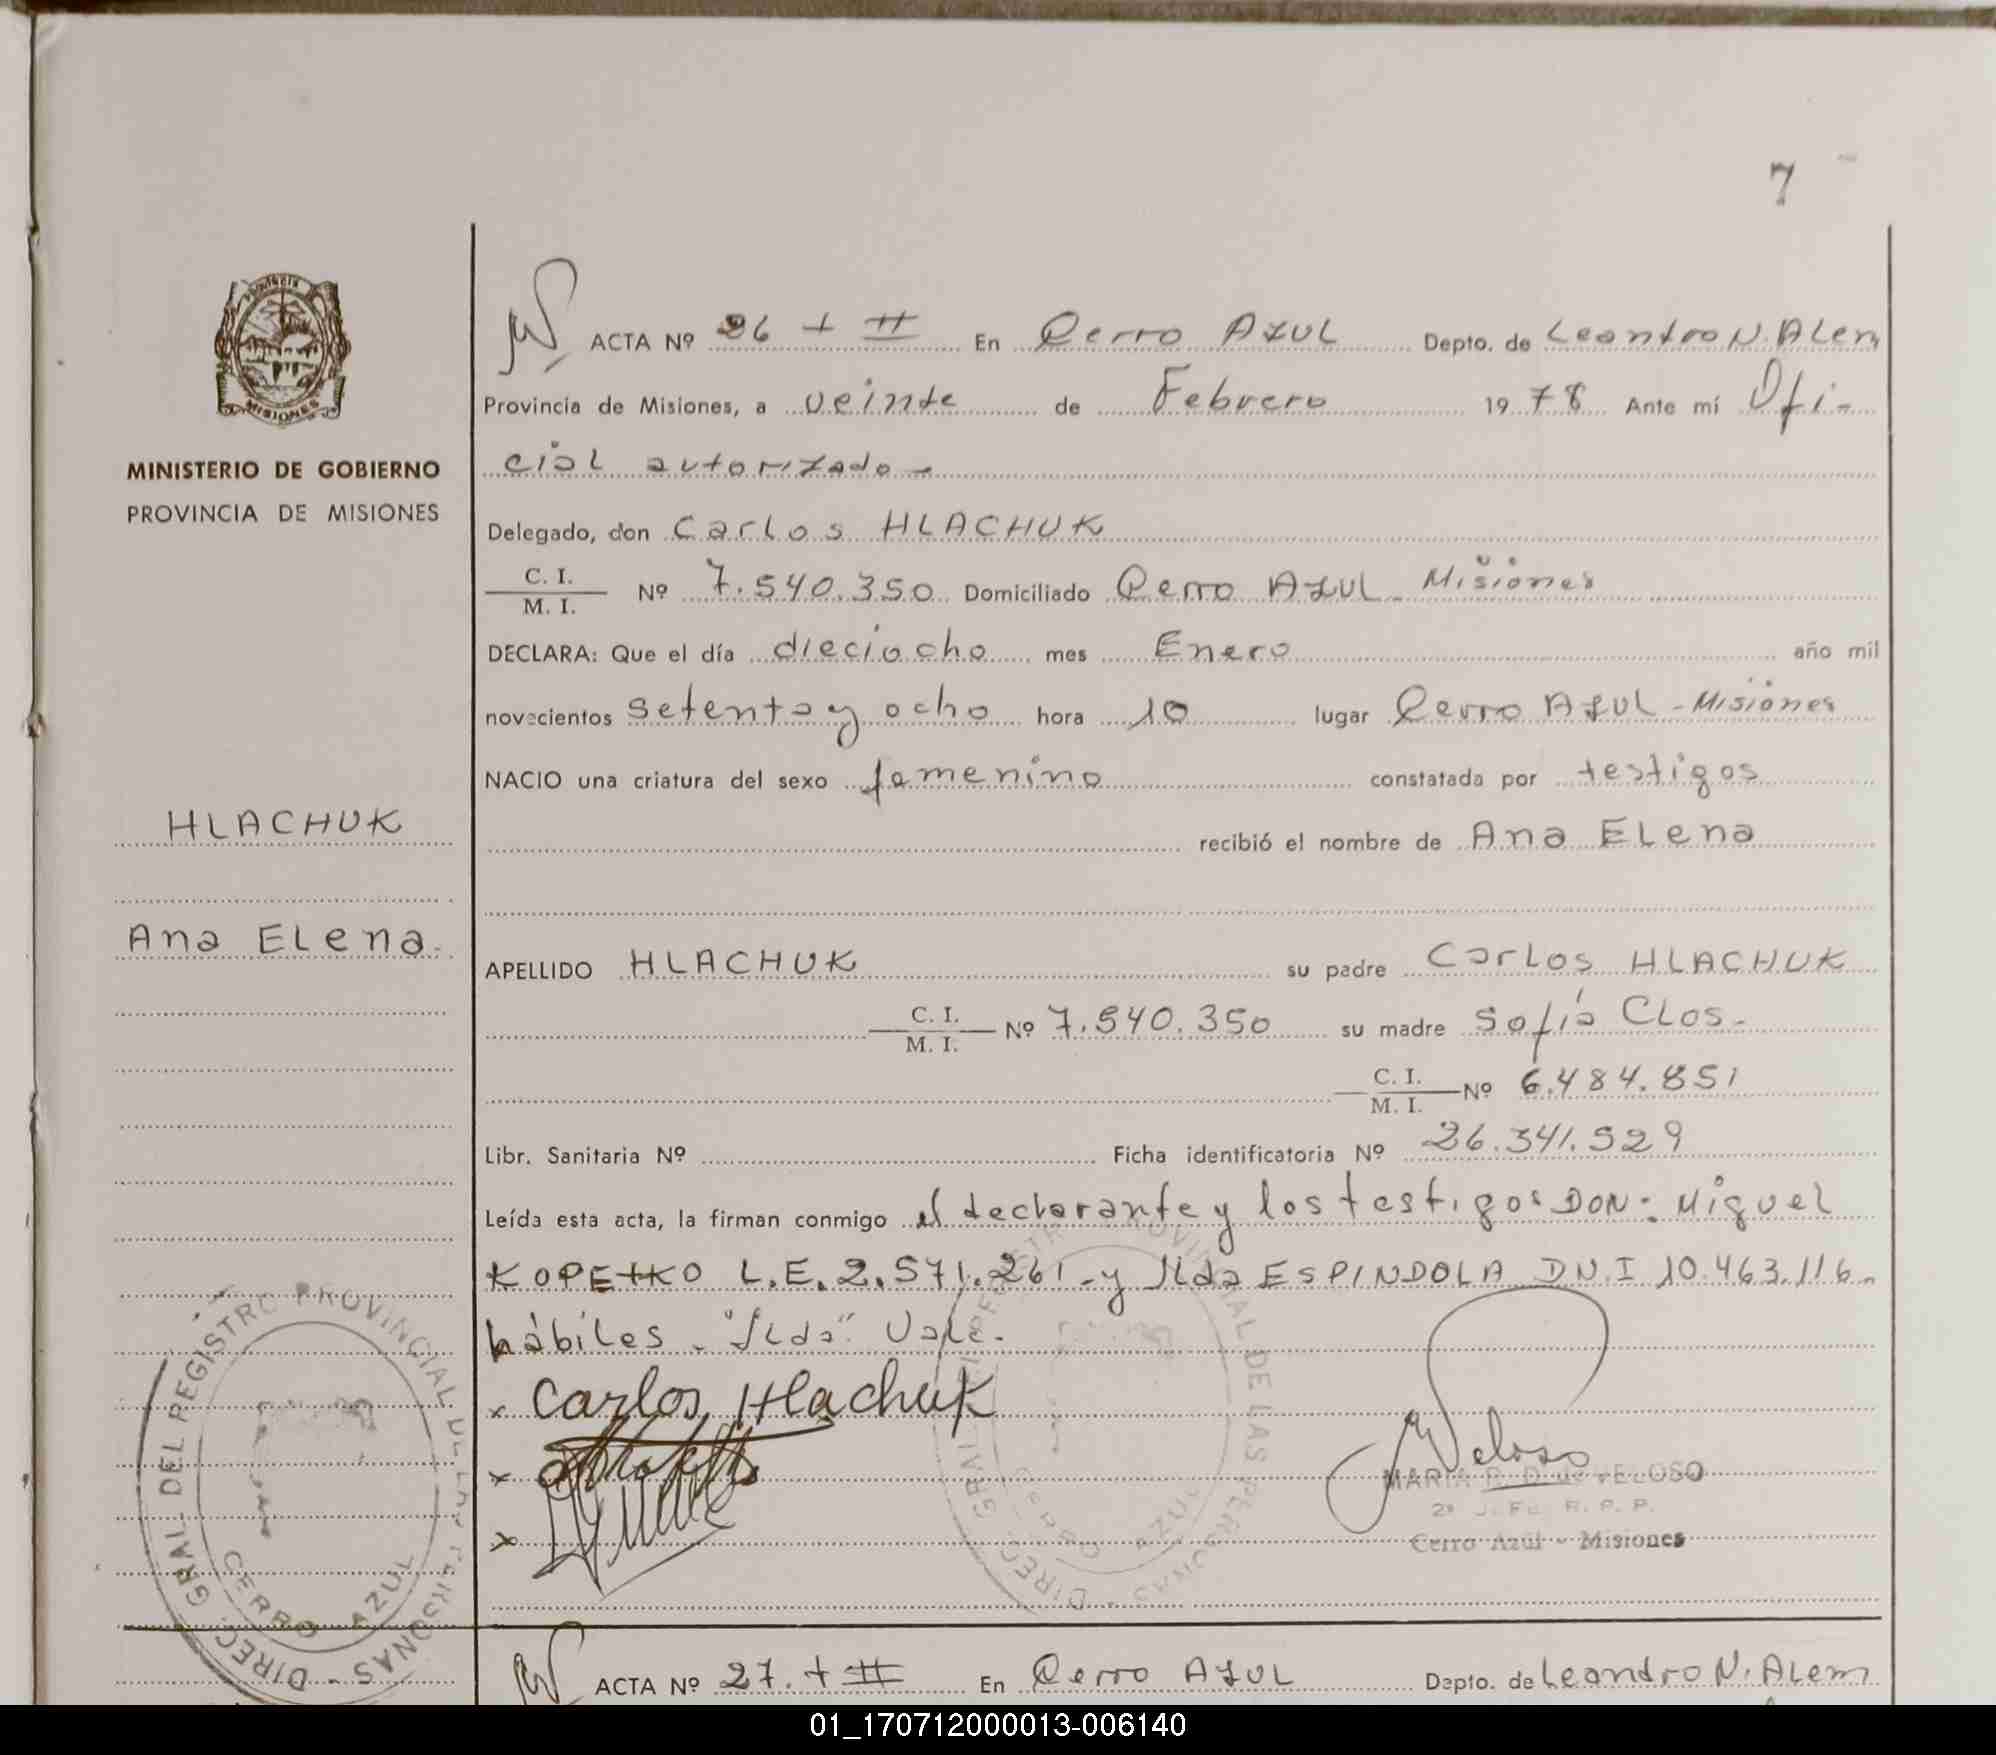 7
PROVINCIA
MISIONES
MINISTERIO DE GOBIERNO
PROVINCIA DE MISIONES
HLACHUK
Ana ELena.
ACTA Nº 26 + II En Cerro AZUL Depto. de Leandro N. ALem
Provincia de Misiones, a veinte de Febrero 1978 Ante mí Ofi-
cial autorizado-
Delegado, don Carlos HLACHUK
C. I.
M. I. Nº 7.540.350 Domiciliado Cerro AZUL - Misiones
DECLARA: Que el día dieciocho mes Enero año mil
novecientos setenta y ocho hora 10 lugar Cerro AZUL - Misiones
NACIO una criatura del sexo femenino constatada por testigos
recibió el nombre de Ana ELena
APELLIDO HLACHUK su padre Carlos HLACHUK
C. I.
M. I. Nº 7.540.350 su madre Sofía CLos-
C. I.
M. I. Nº 6.484.851
Libr. Sanitaria Nº Ficha identificatoria Nº 26.341.529
Leída esta acta, la firman conmigo el declarante y los testigos DON: Miguel
KOPETKO L.E. 2.571.261 - y Ilda ESPINDOLA D.N.I 10.463.116-
hábiles - "Ilda" Vale.
x Carlos Hlachuk
x
x
Veloso
MARIA R. D. de VELOSO
2º J. Fc. R. P. P.
Cerro Azul - Misiones
DIREC. GRAL. DEL REGISTRO PROVINCIAL DE LAS PERSONAS -
CERRO AZUL
DIREC. GRAL. DEL REGISTRO PROVINCIAL DE LAS PERSONAS -
CERRO AZUL
ACTA Nº 27. + II En Cerro AZUL Depto. de Leandro N. ALem
01_170712000013-006140